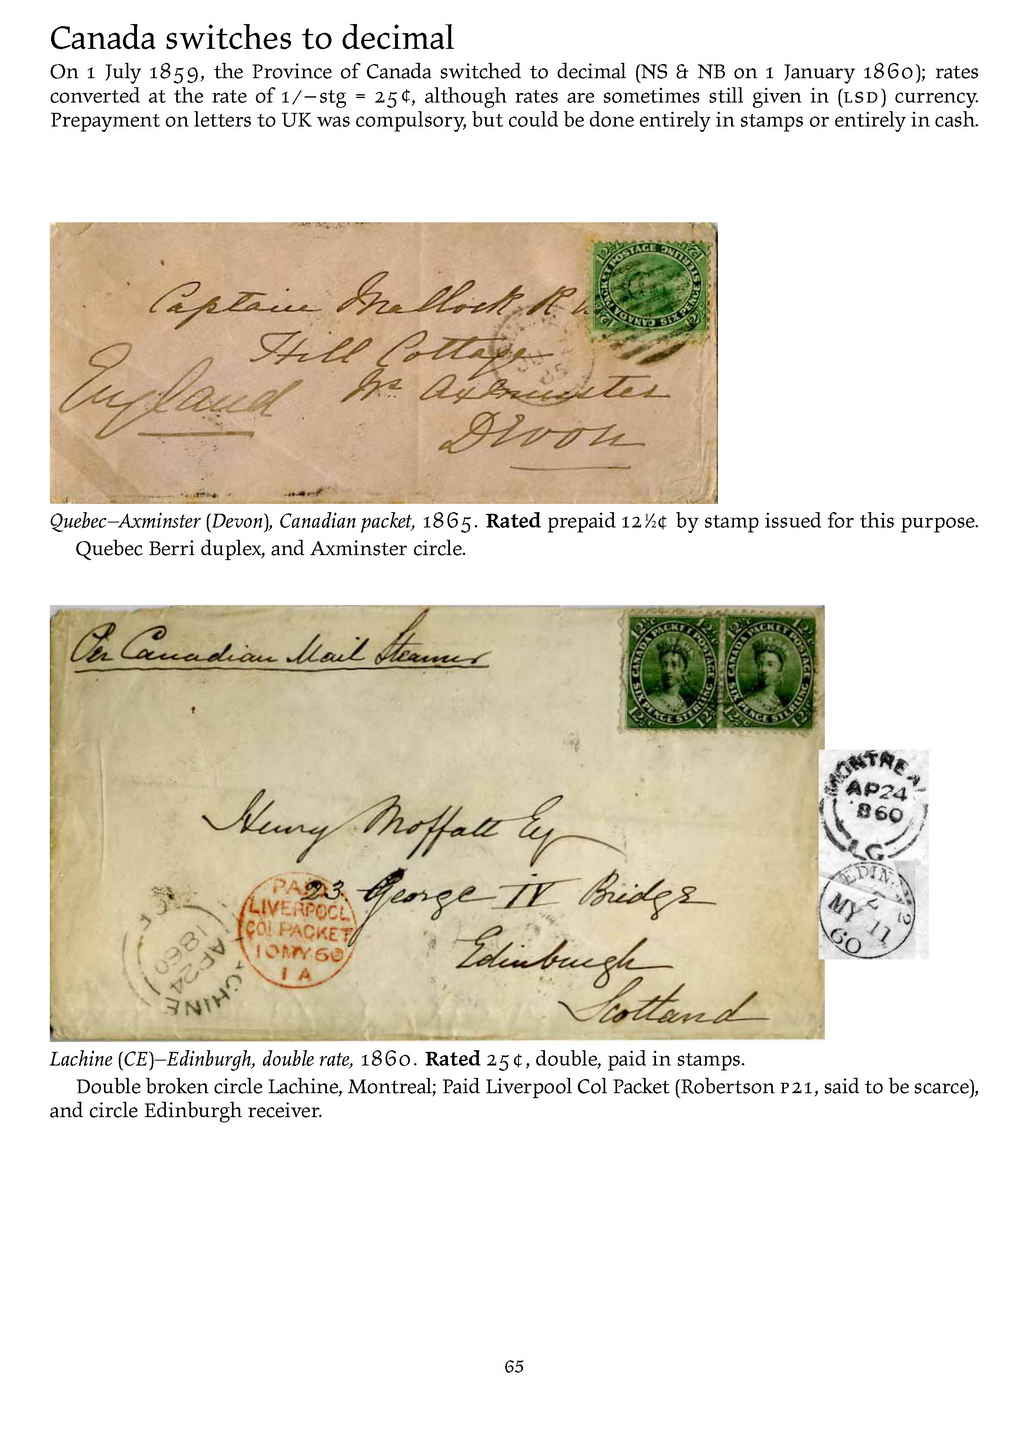 Canada switches to decimal
On 1 July 1859, the Province of Canada switched to decimal (NS & NB on 1 January 1860); rates
converted at the rate of 1/–stg = 25¢, although rates are sometimes still given in (LSD) currency.
Prepayment on letters to UK was compulsory, but could be done entirely in stamps or entirely in cash.
CANADA PACKET POSTAGE SIX PENCE STERLING
Captain Mallock R
Hill Cottage
England Nr. Axminster
Devon
Quebec–Axminster (Devon), Canadian packet, 1865. Rated prepaid 12½¢ by stamp issued for this purpose.
Quebec Berri duplex, and Axminster circle.
Per Canadian Mail Steamer
CANADA PACKET POSTAGE SIX PENCE STERLING
CANADA PACKET POSTAGE SIX PENCE STERLING
MONTREAL
AP 24
1860
LC
Henry Moffatt Esq
23 George IV Bridge
Edinburgh
Scotland
PAID
LIVERPOOL
COL PACKET
10 MY 60
1 A
LACHINE
AP 24
1860
MY 11
60
Lachine (CE)–Edinburgh, double rate, 1860. Rated 25¢, double, paid in stamps.
Double broken circle Lachine, Montreal; Paid Liverpool Col Packet (Robertson P21, said to be scarce),
and circle Edinburgh receiver.
65